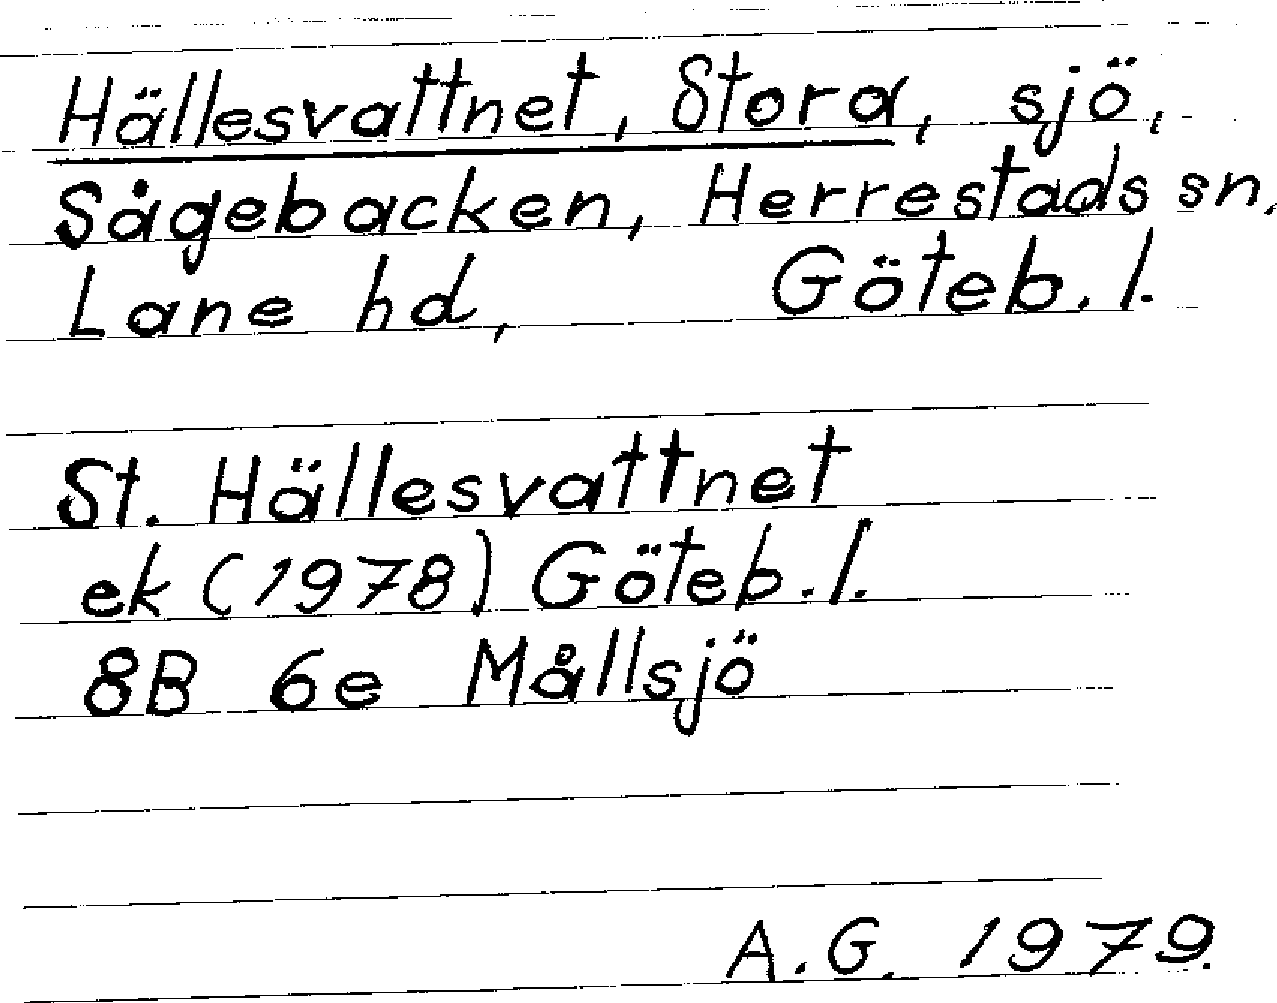 Hällesvattnet, Stora, sjö,
Sågebacken, Herrestads sn,
Lane hd, Göteb. l.
St. Hällesvattnet
ek (1978) Göteb. l.
8B 6e Mållsjö
A. G. 1979.